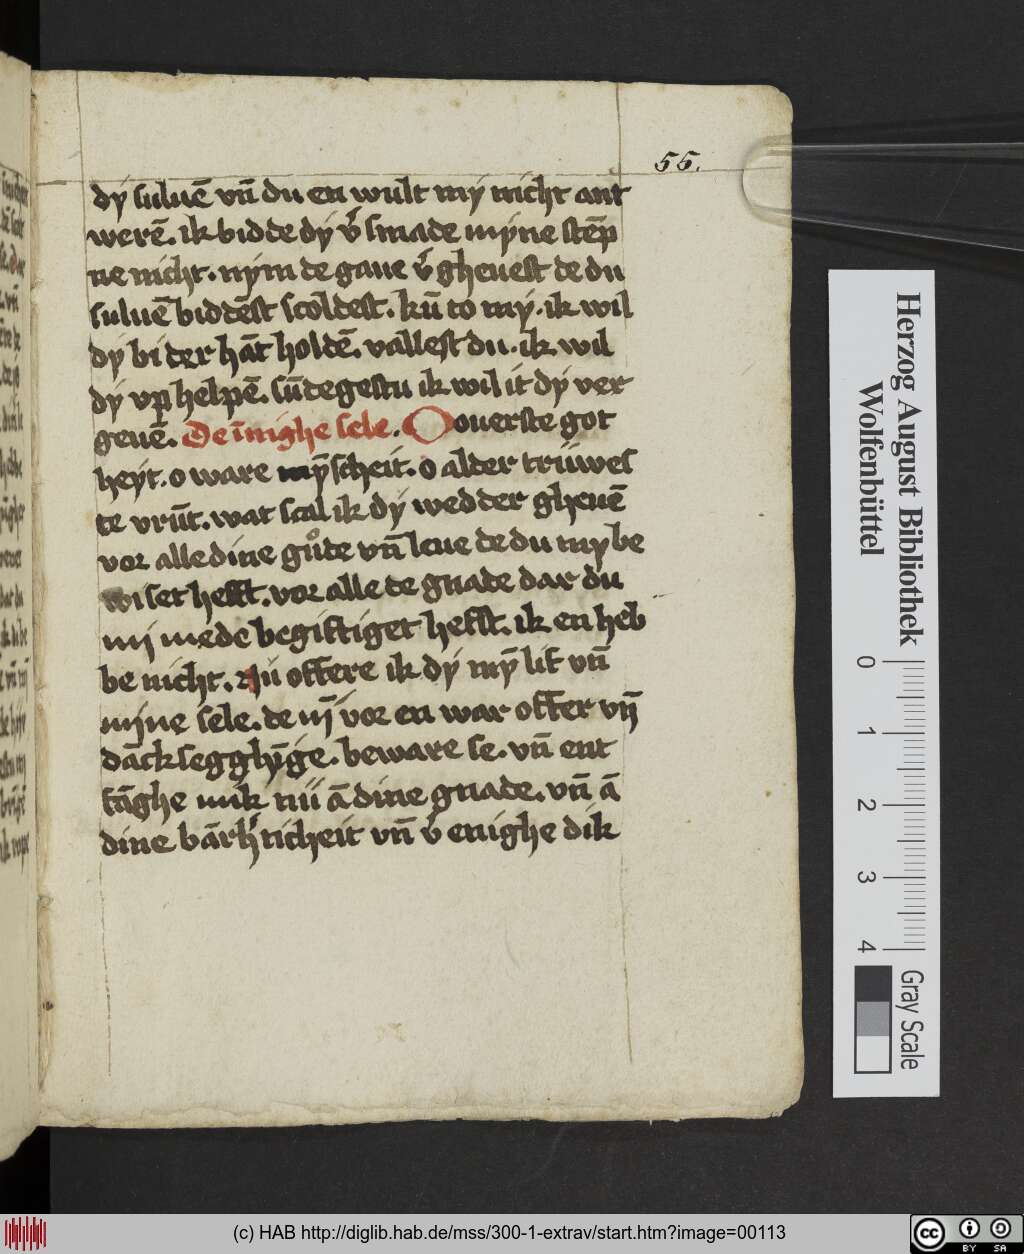 55.
dÿ suluē vn̄ du en wult mÿ nicht ant
werē. ik bidde dÿ v̾smade mÿne stēp
ne nicht. nÿm de gaue v̾ gheuest de du
suluē biddēst scoldest. kū to mÿ. ik wil
dÿ bi der hāt holdē. vallest du. ik wil
dÿ vp helpē. sūdegestu ik wil it dÿ ver
geuē. De īnighe sele. O ouerste got
heyt. o ware mȳscheit. o alder trüwes
te vrūt. wat scal ik dÿ wedder gheuē
vor alle dine gůde vn̄ leue de du my be
wiset hefft. vor alle de gnade dar du
mi mede begiftiget hefft. ik en heb
be nicht. Nü offere ik dÿ mȳ lif vn̄
mine sele. de nī vor en war offer vn̄
dāck segghȳge. beware se. vn̄ ent
fāghe mik nü ā dine gnade. vn̄ ā
dine bārh̾ticheit vn̄ v̾enighe dik
Herzog August Bibliothek
Wolfenbüttel
0 1 2 3 4
Gray Scale
(c) HAB http://diglib.hab.de/mss/300-1-extrav/start.htm?image=00113
cc BY SA